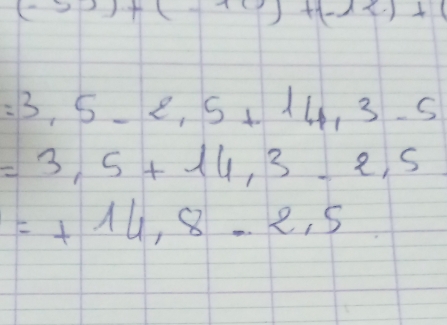 =3,5-2,5+14,3-5
=3,5+14,3-2,5
=+14,8-2,5